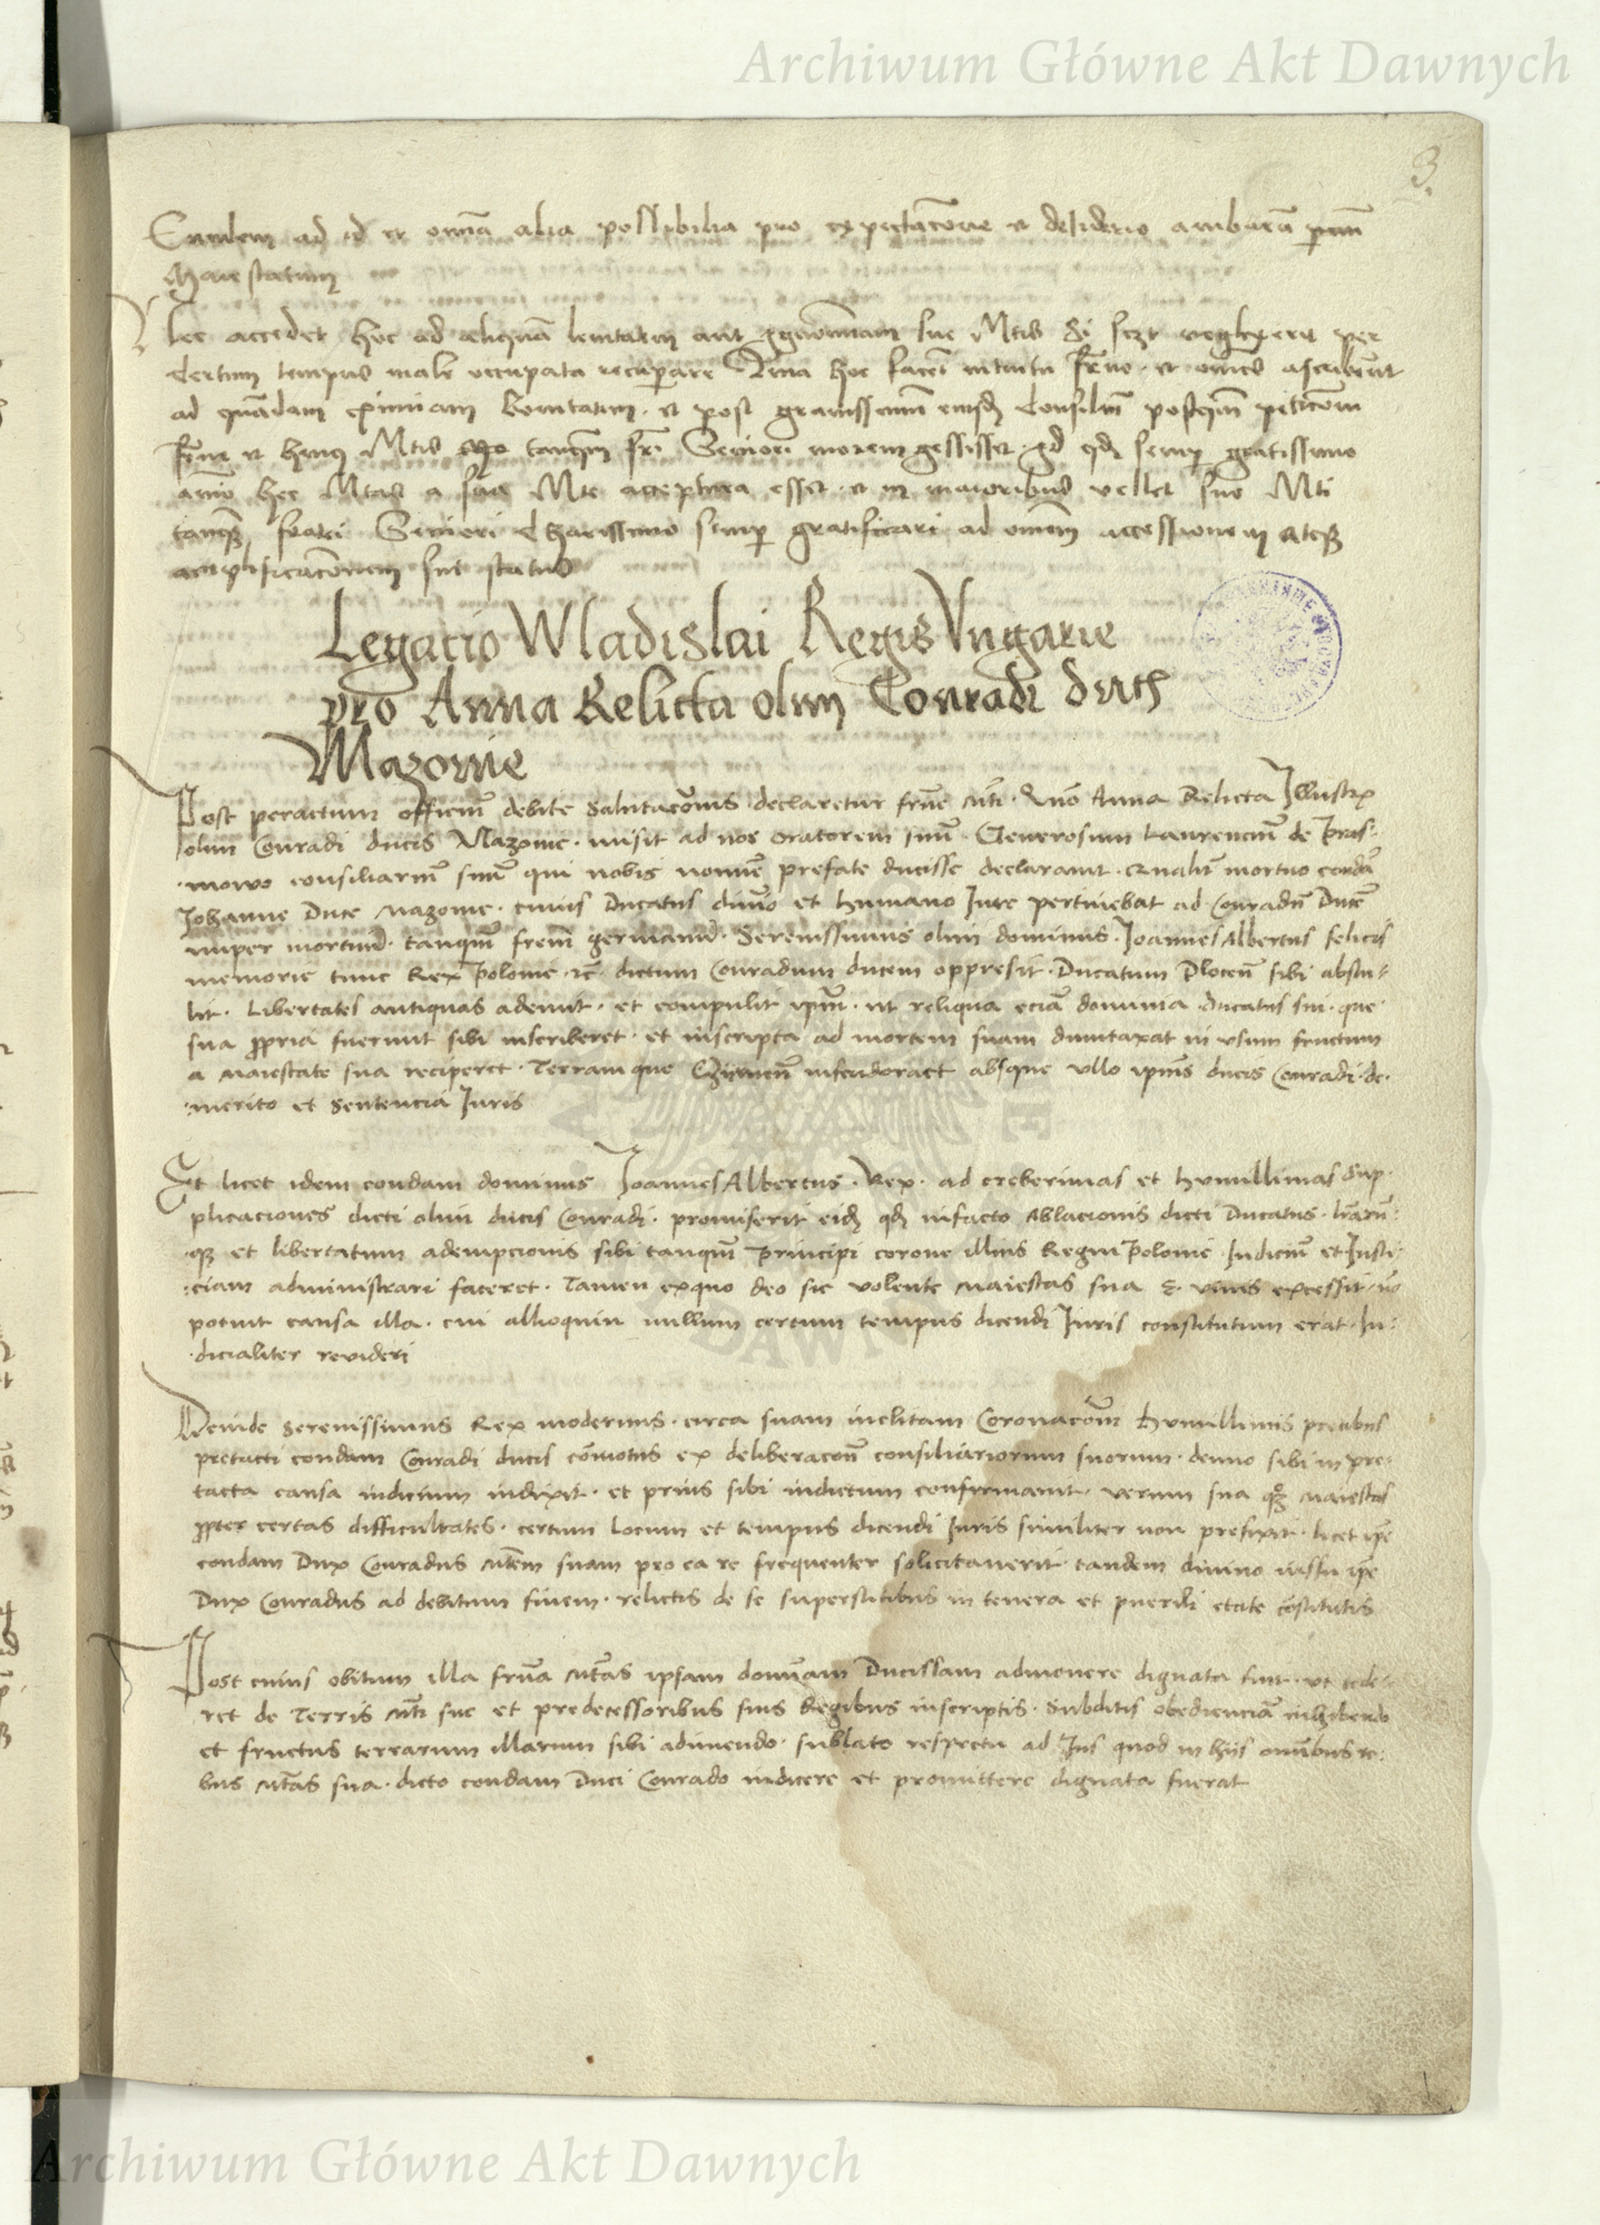 Archiwum Główne Akt Dawnych
3.
Eundem ad id et omnia alia possibilia pro expectacione et desiderio ambarum
Maiestatum
Nec accedet hoc ad aliquam levitatem aut ignominiam sue Mtis Si neglexerit per
Certum tempus male occupata recuperare hoc intuitu et omnes ascribent
ad quandam eximiam bonitatem et post gravissimum Consilium
et Mtis tanquam Seniori morem gessisset gratissimo
animo hec Mtas a sua Mte acceptura esset et in maioribus vellet sue Mti
tanquam fratri Seniori Charissimo semper gratificari ad omnem accessionem atque
amplificacionem sui status
Legacio Wladislai Regis Vngarie
pro Anna Relicta olim Conradi ducis
Mazovie
Post peractum officium debite salutacionis declaretur frne mti Quod Anna Relicta Illustris
olim Conradi ducis Mazovie misit ad nos oratorem suum Generosum Laurencium de Pras:
mowo consiliarium suum qui nobis nomine prefate ducisse declaravit Qualiter mortuo condam
Johanne Duce Mazovie cuius Ducatus divino et humano Iure pertinebat ad Conradum Ducem
nuper mortuum tanquam fratrem germanum Serenissimus olim dominus Joannes Albertus felicis
memorie tunc Rex Polonie dictum Conradum ducem oppressit Ducatum Plocensem sibi abstu:
lit Libertates antiquas ademit et compulit ipsum ut reliqua eciam domina ducatus sui que
sua propria fuerunt sibi inscriberet et inscripta ad mortem suam dumtaxat in usum fructum
a Maiestate sua reciperet Terramque infeudaret absque ullo ipsius ducis Conradi de:
merito et sentencia Iuris
Et licet idem condam dominus Joannes Albertus Rex ad creberimas et humillimas sup:
plicaciones dicti olim ducis Conradi promiserit eidem quod in facto Ablacionis dicti Ducatus
que et libertatum adempcionis sibi tanquam Principi corone illius Regni Polonie Iudicium et Iusti:
ciam administrari faceret Tamen exquo deo sic volente Maiestas sua e vivis excessit non
potuit causa illa cui alioquin nullum certum tempus dicendi Iuris constitutum erat Iu:
dicialiter revideri
Deinde Serenissimus Rex modernus circa suam inclitam Coronacionem humillimis precibus
pretacti condam Conradi ducis commotus ex deliberacione consiliariorum suorum denuo sibi in pre:
tacta causa iudicium indixit et prius sibi indictum confirmavit verum sua quoque Maiestas
propter certas difficultates certum locum et tempus dicendi Iuris similiter non prefixit licet ipse
condam Dux Conradus Mtem suam pro ea re frequenter solicitaverit tandem divino iussu ipse
Dux Conradus ad debitum finem relictis de se superstitibus in tenera et puerili etate constitutis
Post cuius obitum illa frna Mtas ipsam dominam Ducissam admonere dignata fuit ut cede:
ret de Terris Mti sue et predecessoribus suis Regibus inscriptis Subditis obedienciam inhibendo
et fructus terrarum illarum sibi adimendo sublato respectu ad Ius quod in hiis omnibus re:
bus Mtas sua dicto condam Duci Conrado indicere et promittere dignata fuerat
Archiwum Główne Akt Dawnych